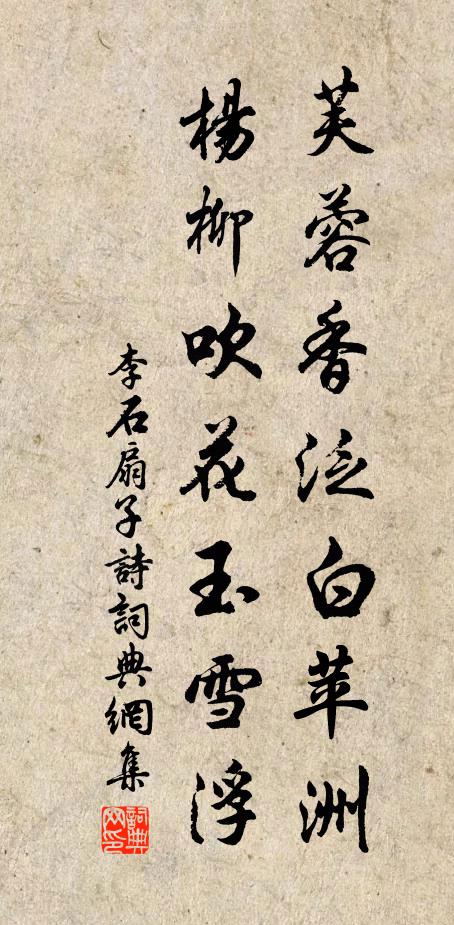 芙蓉香泛白苹洲
楊柳吹花玉雪浮
李石扇子詩詞典網集
詞典網印